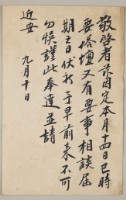 敬啓者茲因定本月十四日巳時
要塔壇又有要事相談屆
期之日伏祈于早前来不可
勿悞謹此奉達並請
近安
九月十日